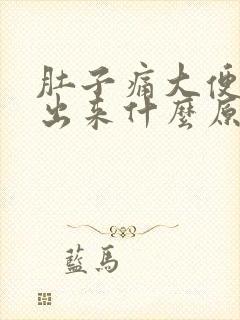 肚子痛大便
出来什麼原
藍馬